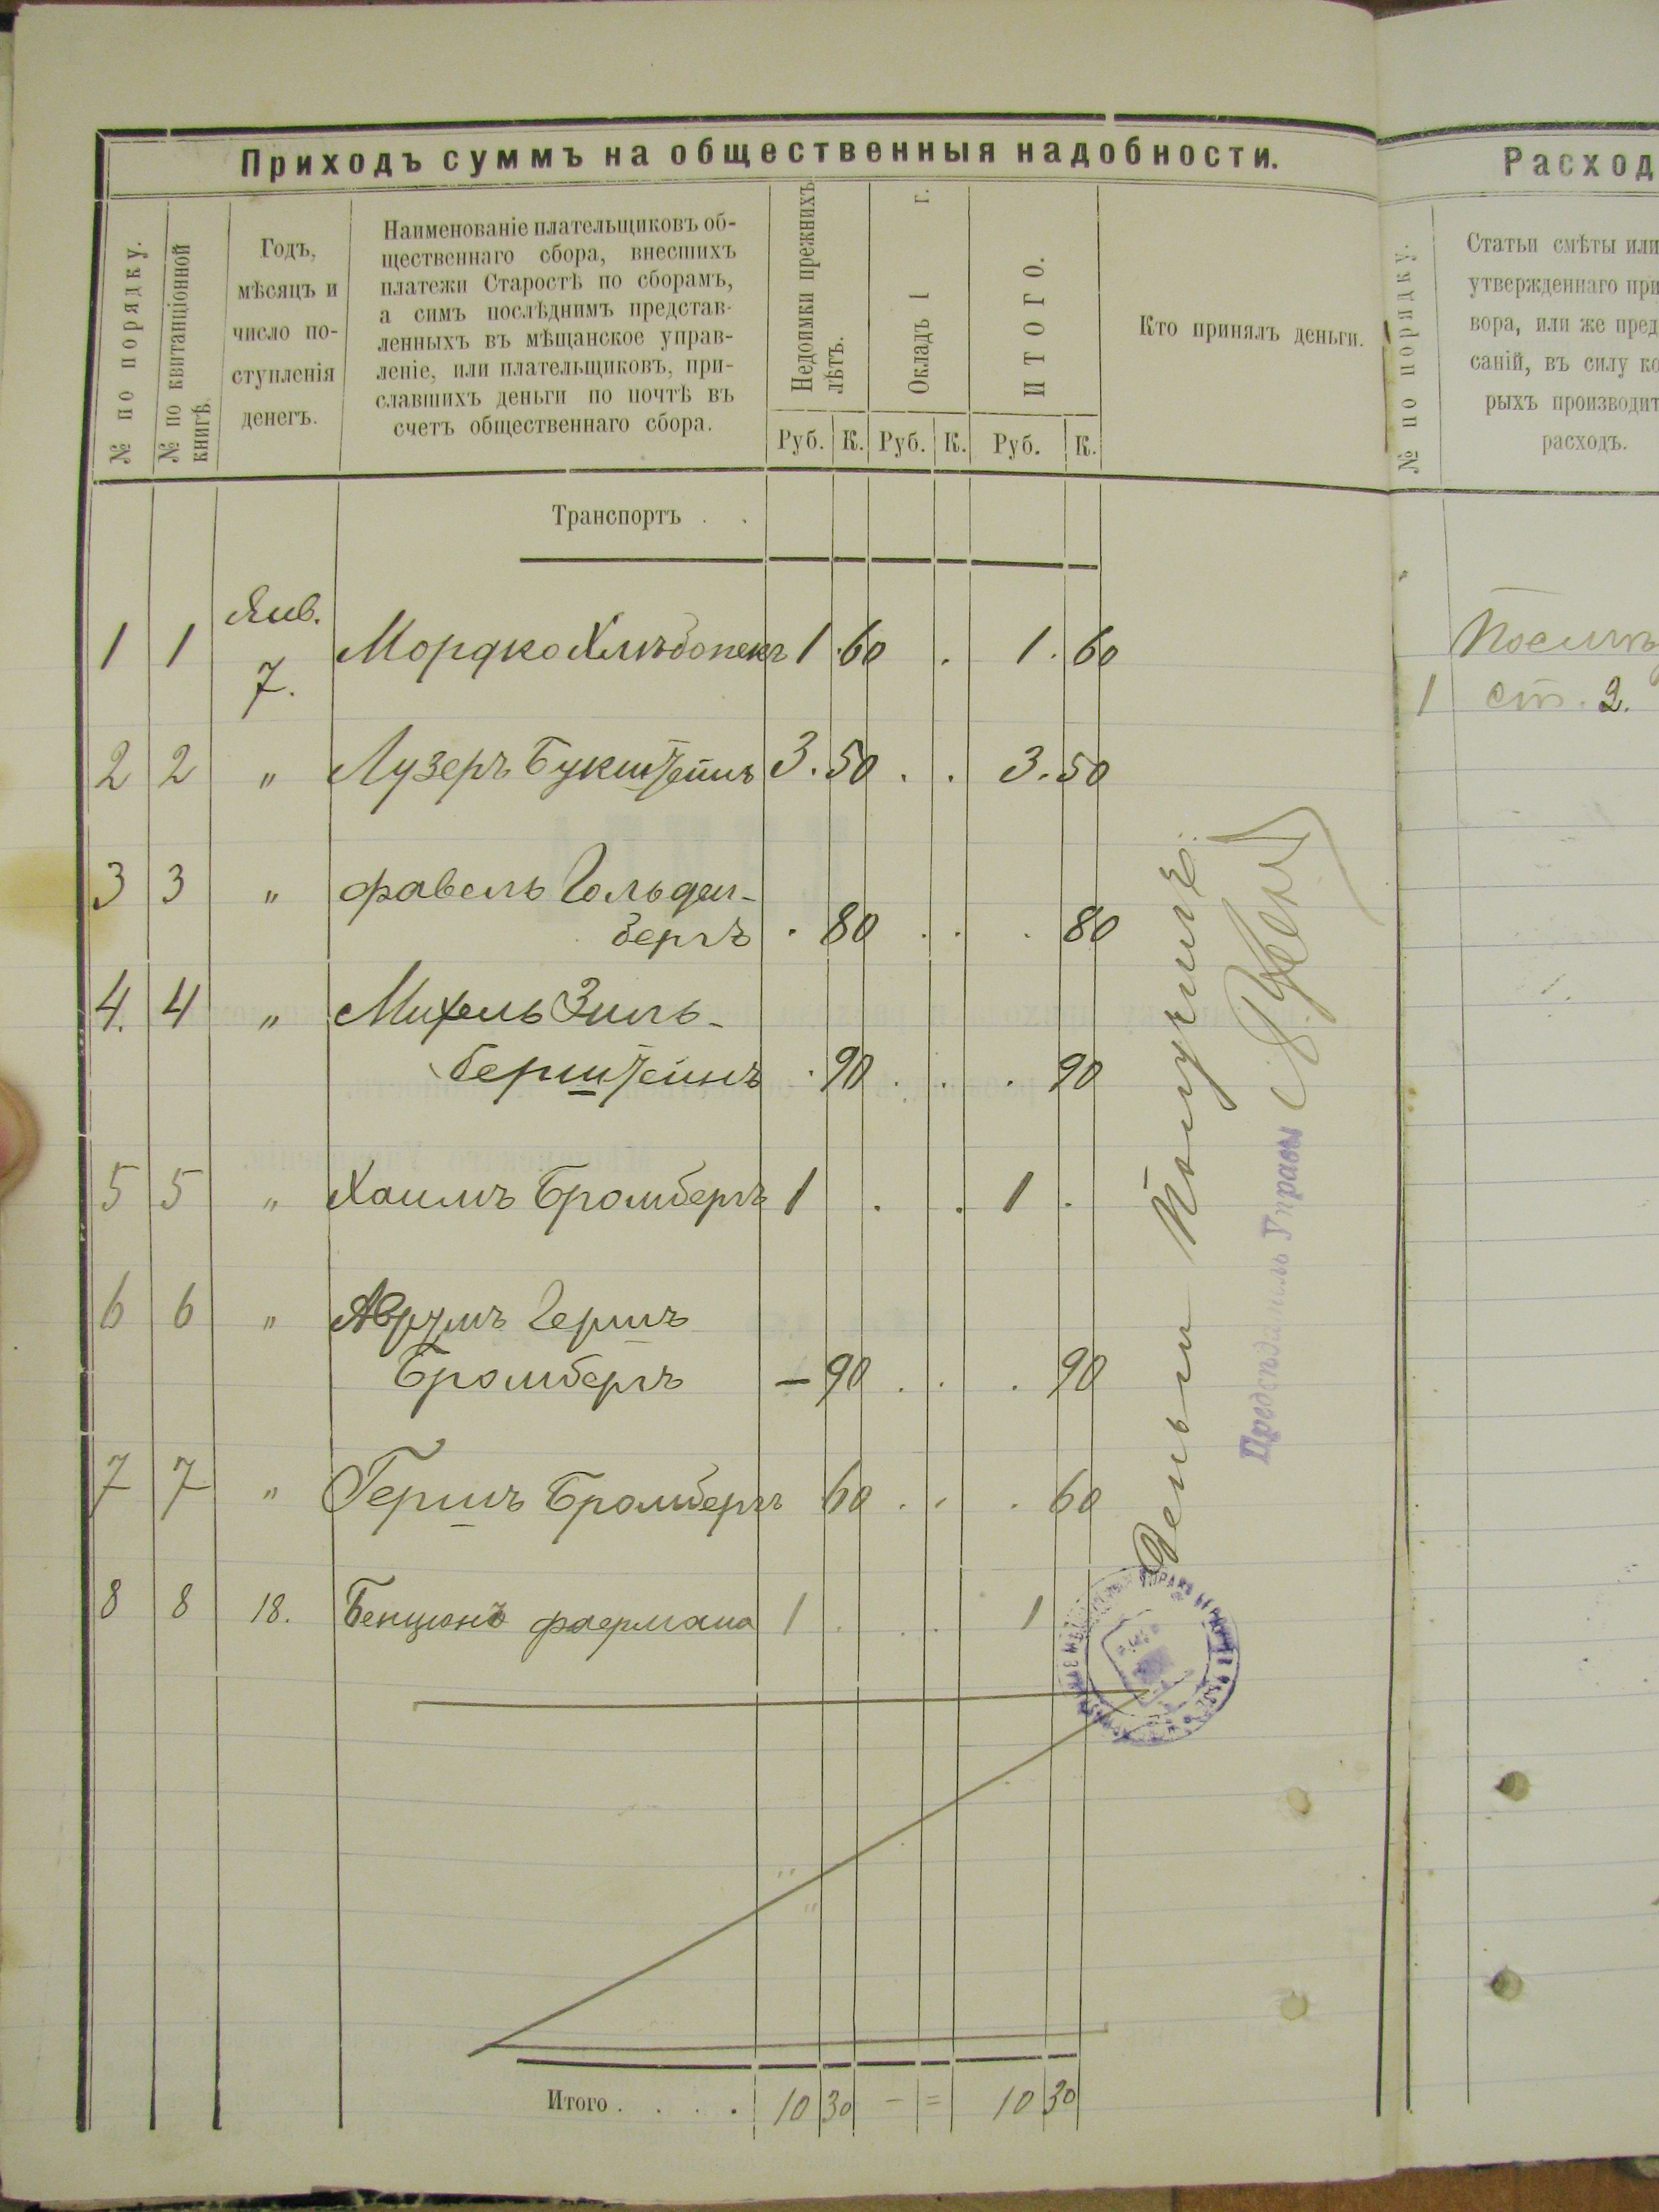 Приходъ суммъ на общественныя надобности.
№ по порядку.
№ по квитанціонной
книгѣ.
Годъ,
мѣсяцъ и
число по-
ступленія
денегъ.
Наименованіе плательщиковъ об-
щественнаго сбора, внесшихъ
платежи Старостѣ по сборамъ,
а симъ послѣднимъ представ-
ленныхъ въ мѣщанское управ-
леніе, или плательщиковъ, при-
славшихъ деньги по почтѣ въ
счетъ общественнаго сбора.
Недоимки прежнихъ
лѣтъ.
Окладъ 1 г.
ИТОГО.
Кто принялъ деньги.
Руб. К. Руб. К. Руб. К.
Транспортъ . .
Янв.
1 1 7. Мордко Хлѣбопекъ 1 . 60 . 1 . 60
2 2 " Лузеръ Букштейнъ 3 . 50 . . 3 . 50
3 3 " Фавель Гольден-
бергъ . 80 . . . 80
4. 4 " Михель Зиль-
берштейнъ . 90 . . . 90
5 5 " Хаимъ Бромбергъ 1 . . 1 .
6 6 " Аврумъ Гершъ
Бромбергъ — 90 . . . 90
7 7 " Гершъ Бромбергъ 60 . . . 60
8 8 18. Бенціонъ Фаермана 1 . . . 1
Деньги получилъ:
Предсѣдатель Управы
Итого . . . . 10 30 – = 10 30
Расход
№ по порядку.
Статьи смѣты или
утвержденнаго при
вора, или же пред
саній, въ силу ко
рыхъ производит
расходъ.
1 ст. 2.